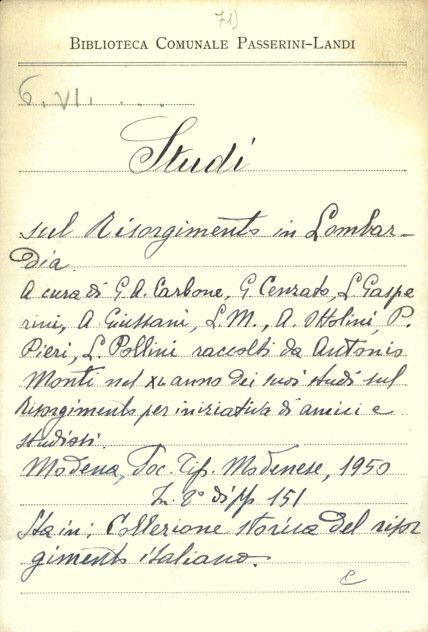 71)
BIBLIOTECA COMUNALE PASSERINI-LANDI
6. VI. . . .
Studi
sul Risorgimento in Lombar-
dia.
A cura di G. A. Carbone, G Cenzato, L Gaspe
rini, A Giussani, L. M., A. Ottolini P.
Pieri, L. Pollini raccolti da Antonio
Monti nel XL anno dei suoi studi sul
Risorgimento per iniziativa di amici e
studiosi.
Modena, Soc. Tip. Modenese, 1950
In 8° di pp 151
Sta in: Collezione storica del risor
gimento italiano.
c